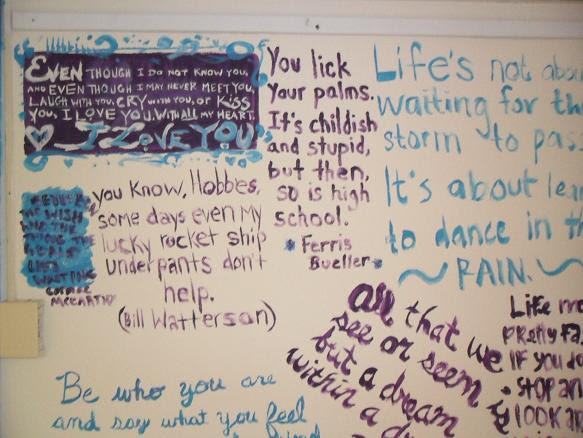 EVEN THOUGH I DO NOT KNOW YOU,
AND EVEN THOUGH I MAY NEVER MEET YOU,
LAUGH WITH YOU, CRY WITH YOU, OR KISS
YOU, I LOVE YOU. WITH ALL MY HEART.
I LOVE YOU
You lick
your palms.
It's childish
and stupid,
but then,
so is high
school.
Ferris
Bueller
Life's not abou
waiting for th
storm to pas
It's about lea
to dance in th
RAIN.
THE WISH
you know, Hobbes,
some days even my
lucky rocket ship
underpants don't
help.
(Bill Watterson)
All that we
see or seem
but a dream
within a d
Life mo
PRETTY Fa
IF you do
STOP an
LOOK a
Be who you are
and say what you feel